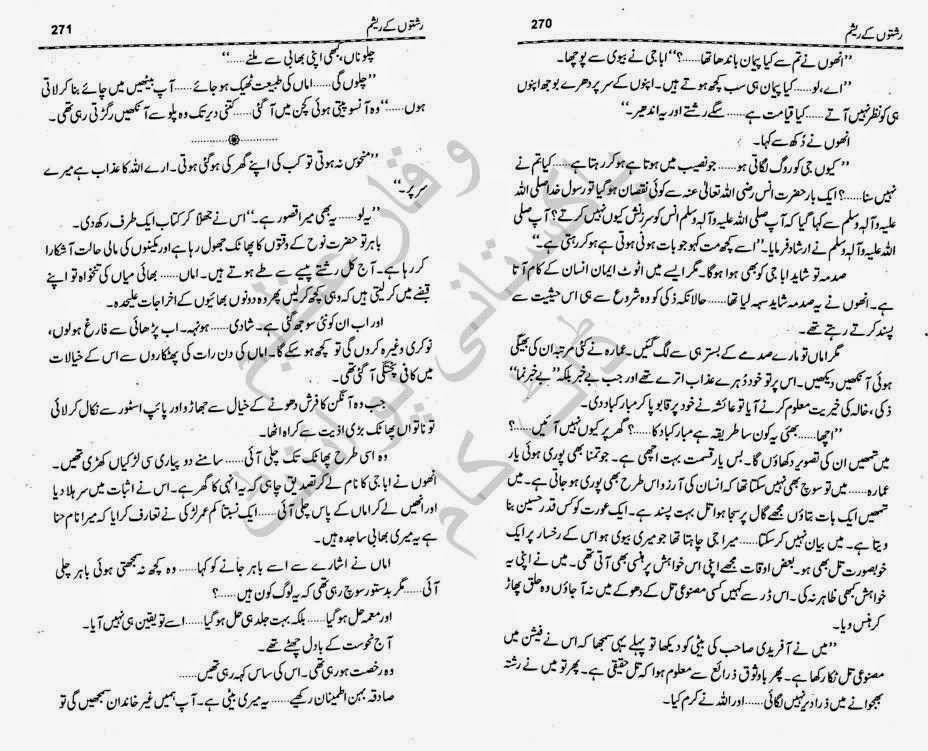 رشتوں کے ریشم 270
’’انھوں نے تم سے کیا پیمان باندھا تھا......؟‘‘ اباجی نے بیوی سے پوچھا۔
’’اے،لو......کیا پیمان ہی سب کچھ ہوتے ہیں۔ اپنوں کے سر پر دھرے بوجھ اپنوں
ہی کو نظر نہیں آتے......کیا قیامت ہے......سگے رشتے اور یہ اندھیر۔‘‘
انھوں نے دُکھ سے کہا۔
’’کیوں جی کو روگ لگاتی ہو......جو نصیب میں ہوتا ہے ہو کر رہتا ہے......کیا تم نے
نہیں سنا......؟ ایک بار حضرت انس رضی اللہ تعالیٰ عنہ سے کوئی نقصان ہوگیا تو رسول خدا صلی اللہ
علیہ وآلہ وسلم سے کہا گیا کہ آپ صلی اللہ علیہ وآلہ وسلم انس کو سرزنش کیوں نہیں کرتے؟ آپ صلی
اللہ علیہ وآلہ وسلم نے ارشاد فرمایا۔’’اسے کچھ مت کہو جو بات ہونی ہوتی ہے ہو کر رہتی ہے۔‘‘
صدمہ تو شاید اباجی کو بھی ہوا ہوگا۔ مگر ایسے میں انوٹ ایمان انسان کے کام آتا
ہے۔ انھوں نے یہ صدمہ شاید سہہ لیا تھا......حالانکہ ذکی کو وہ شروع سے ہی اس حیثیت سے
پسند کرتے رہے تھے۔
مگر اماں تو مارے صدمے کے بستر ہی سے لگ گئیں۔ عمارہ نے کئی مرتبہ ان کی بھیگی
ہوئی آنکھیں دیکھیں۔ اس پر تو خود دُہرے عذاب اترے تھے اور جب بے خبر بلکہ’’بے خبر نما‘‘
ذکی، خالہ کی خیریت معلوم کرنے آیا تو عائشہ نے خود پر قابو پا کر مبارکباد دی۔
’’اچھا......بھئی یہ کون سا طریقہ ہے مبارکباد کا......؟ گھر پر کیوں نہیں آئیں......؟
میں تمھیں ان کی تصویر دکھاؤں گا۔ بس یار قسمت بہت اچھی ہے۔ جو تمنا بھی پوری ہوئی یار
عمارہ......میں تو سوچ بھی نہیں سکتا تھا کہ انسان کی آرزو اس طرح بھی پوری ہو جاتی ہے۔ میں
تمھیں ایک بات بتاؤں مجھے گال پر سجا ہوا تل بہت پسند ہے۔ ایک عورت کو کس قدر حسین بنا
دیتا ہے۔ میں بیان نہیں کر سکتا......میرا جی چاہتا تھا جو میری بیوی ہو اس کے رخسار پر ایک
خوبصورت تل بھی ہو۔ بعض اوقات مجھے اپنی اس خواہش پر ہنسی بھی آتی تھی۔ میں نے اپنی یہ
خواہش کبھی ظاہر نہ کی۔ اس ڈر سے کہیں کسی مصنوعی تل کے دھوکے میں نہ آ جاؤں وہ حلق پھاڑ
کر ہنس دیا۔
’’میں نے آفریدی صاحب کی بیٹی کو دیکھا تو پہلے یہی سمجھا کہ اس نے فیشن میں
مصنوعی تل لگا رکھا ہے۔ پھر باوثوق ذرائع سے معلوم ہوا کہ تل حقیقی ہے۔ پھر تو میں نے رشتہ
بھجوانے میں ذرا دیر نہیں لگائی......اور اللہ نے کرم کیا۔
رشتوں کے ریشم 271
چلو ناں، کبھی اپنی بھابی سے ملنے......‘‘
’’چلوں گی......اماں کی طبیعت ٹھیک ہو جائے......آپ بیٹھیں میں چائے بنا کر لاتی
ہوں......‘‘ وہ آنسو پیتی ہوئی کچن میں آگئی......کتنی دیر تک وہ پلو سے آنکھیں رگڑتی رہی تھی۔
’’منحوس نہ ہوتی تو کب کی اپنے گھر کی ہوگئی ہوتی۔ ارے اللہ کا عذاب ہے میرے
سر پر۔‘‘
’’یہ لو......یہ بھی میرا قصور ہے۔‘‘ اس نے جھلا کر کتاب ایک طرف رکھ دی۔
باہر تو حضرت نوح کے وقتوں کا پھاٹک جھول رہا ہے اور مکینوں کی مالی حالت آشکارا
کر رہا ہے۔ آج کل رشتے پیسے سے طے ہوتے ہیں۔ اماں......بھائی میاں کی تنخواہ تو اپنے
قبضے میں کر لیتی ہیں کہ وہی کچھ کر لیں پھر وہ دونوں بھائیوں کے اخراجات علیحدہ۔
اور اب ان کو نئی سوجھ گئی ہے۔ شادی......ہونہہ۔ اب پڑھائی سے فارغ ہولوں،
نوکری وغیرہ کروں گی تو کچھ ہو سکے گا۔ اماں کی دن رات کی پھٹکاروں سے اس کے خیالات
میں کافی پختگی آگئی تھی۔
جب وہ آنگن کا فرش دھونے کے خیال سے جھاڑو اور پائپ اسٹور سے نکال کر لائی
تو ناتواں پھاٹک بڑی اذیت سے کراہ اٹھا۔
وہ اسی طرح پھاٹک تک چلی آئی......سامنے دو پیاری سی لڑکیاں کھڑی تھیں۔
انھوں نے اباجی کا نام لے کر تصدیق چاہی کہ یہ انہی کا گھر ہے۔ اس نے اثبات میں سر ہلا دیا
اور انھیں لے کر اماں کے پاس چلی آئی......ایک نسبتاً کم عمر لڑکی نے تعارف کرایا کہ میرا نام حنا
ہے یہ میری بھابی ساجدہ ہیں۔
اماں نے اشارے سے اسے باہر جانے کو کہا......وہ کچھ نہ سمجھتی ہوئی باہر چلی
آئی......مگر بدستور سوچ رہی تھی کہ یہ لوگ کون ہیں......؟
اور معمہ حل ہوگیا......بلکہ بہت جلد ہی حل ہوگیا......اسے تو یقین ہی نہیں آیا۔
آج نحوست کے بادل چھٹے تھے۔
وہ رخصت ہو رہی تھی۔ اس کی ساس کہہ رہی تھیں......
صادقہ بہن اطمینان رکھیے......یہ میری بیٹی ہے۔ آپ ہمیں غیر خاندان سمجھیں گی تو